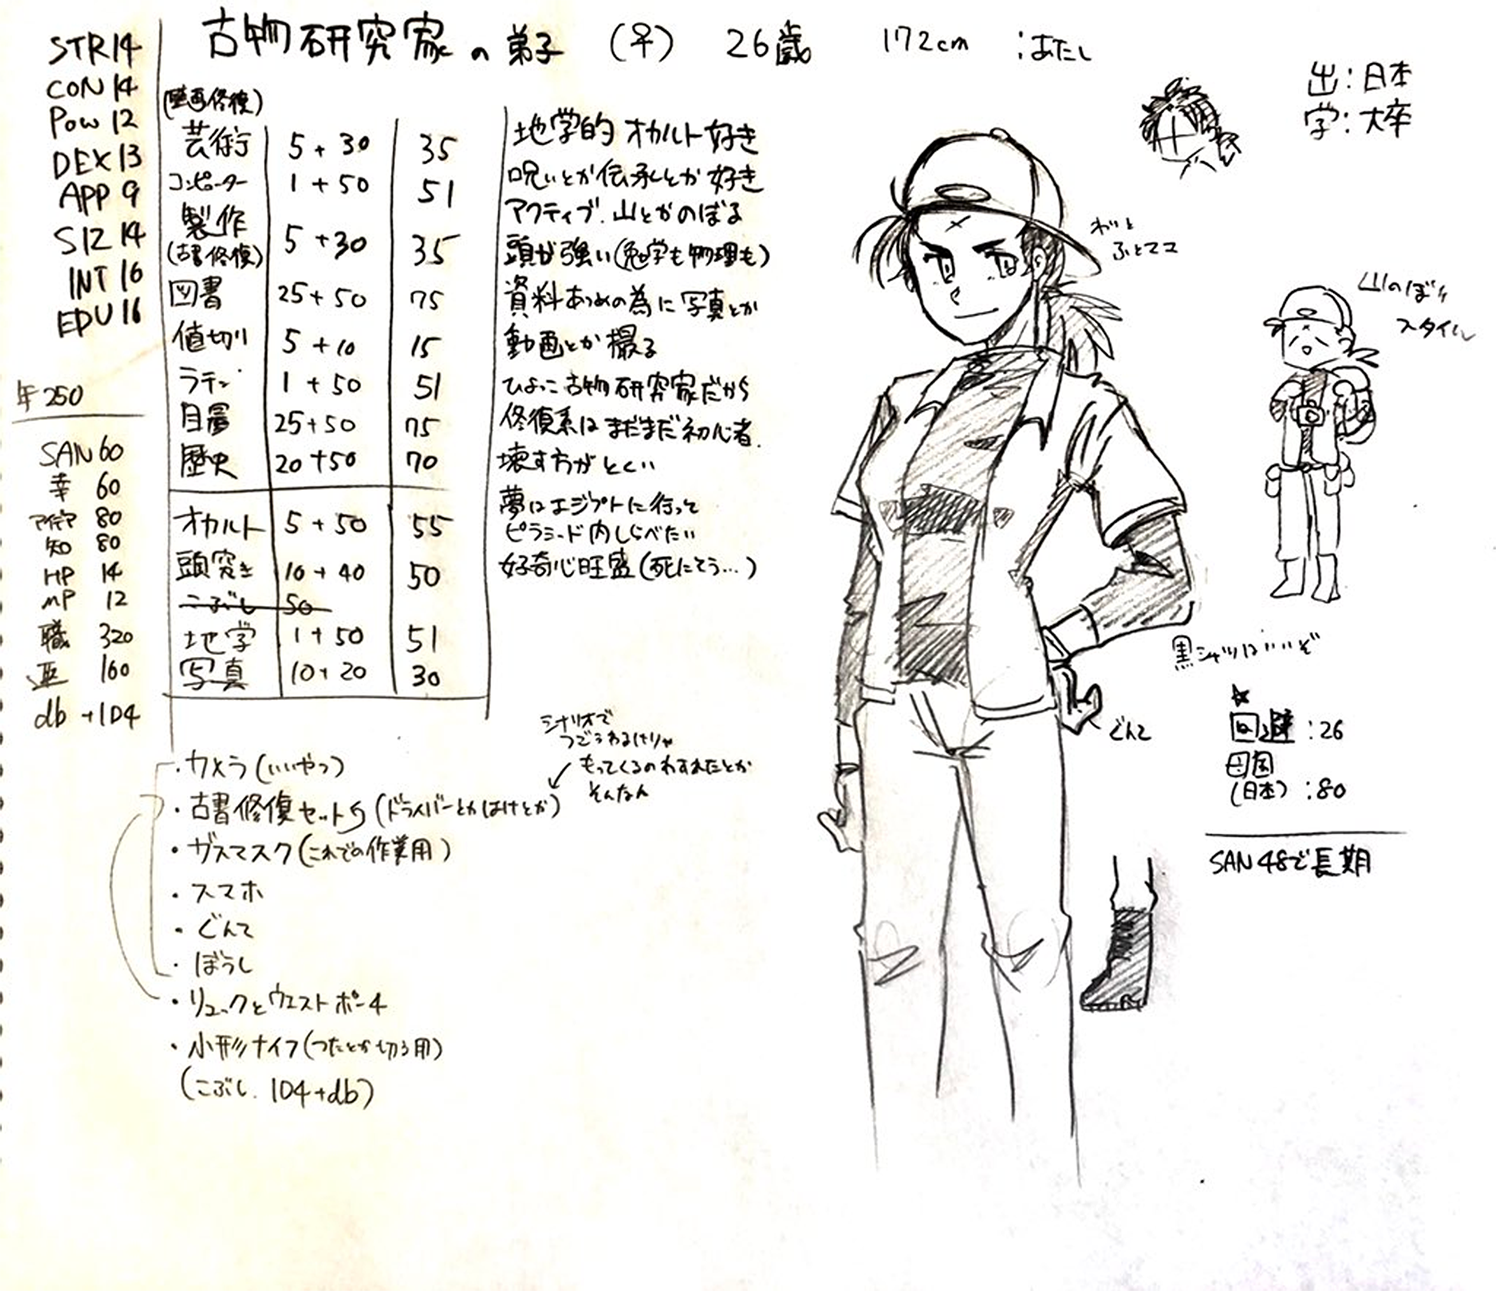 古物研究家の弟子 (♀) 26歳 172cm :あたし
出:日本
学:大卒
STR14
CON 14
Pow 12
DEX13
APP 9
SIZ 14
INT 16
EDU 16
年250
SAN 60
幸 60
アイデア 80
知 80
HP 14
MP 12
職 320
趣 160
db +1D4
(壁画修復)
芸術 5+30 35
コンピューター 1+50 51
製作
(古書修復) 5+30 35
図書 25+50 75
値切り 5+10 15
ラテン 1+50 51
目星 25+50 75
歴史 20+50 70
オカルト 5+50 55
頭突き 10+40 50
こぶし 50
地学 1+50 51
写真 10+20 30
地学的オカルト好き
呪いとか伝承とか好き
アクティブ.山とかのぼる
頭が強い(勉学も物理も)
資料あつめの為に写真とか
動画とか撮る
ひよっこ古物研究家だから
修復系はまだまだ初心者.
壊す方がとくい
夢はエジプトに行って
ピラミード内しらべたい
好奇心旺盛(死にてう…)
・カメラ(いいやつ)
・古書修復セット(ドライバーとかはけとか)
・ガスマスク(これでの作業用)
・スマホ
・ぐんて
・ぼうし
・リュックとウエストポーチ
・小形ナイフ(つたとか切る用)
(こぶし.1D4+db)
シナリオで
つごうわるけりゃ
もってくるのわすれたとか
そんなん
わりと
ふとママ
山のぼり
スタイル
黒シャツはいいぞ
ぐんて
☆
回避:26
母国
(日本):80
SAN48で長期